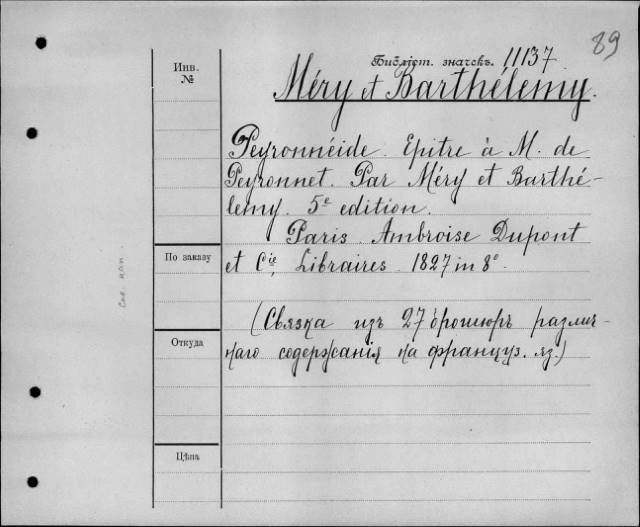 89
Библіот. значекъ. 11137
Инв.
№
Méry et Barthélemy.
Peyronnéide. Epitre à M. de
Peyronnet. Par Méry et Barthé-
lemy. 5e edition.
Paris. Ambroise Dupont
По заказу
et Cie, Libraires. 1827 in 8o.
(Связка изъ 27 брошюръ различ-
Откуда
наго содержанія на француз. яз.)
Цѣна